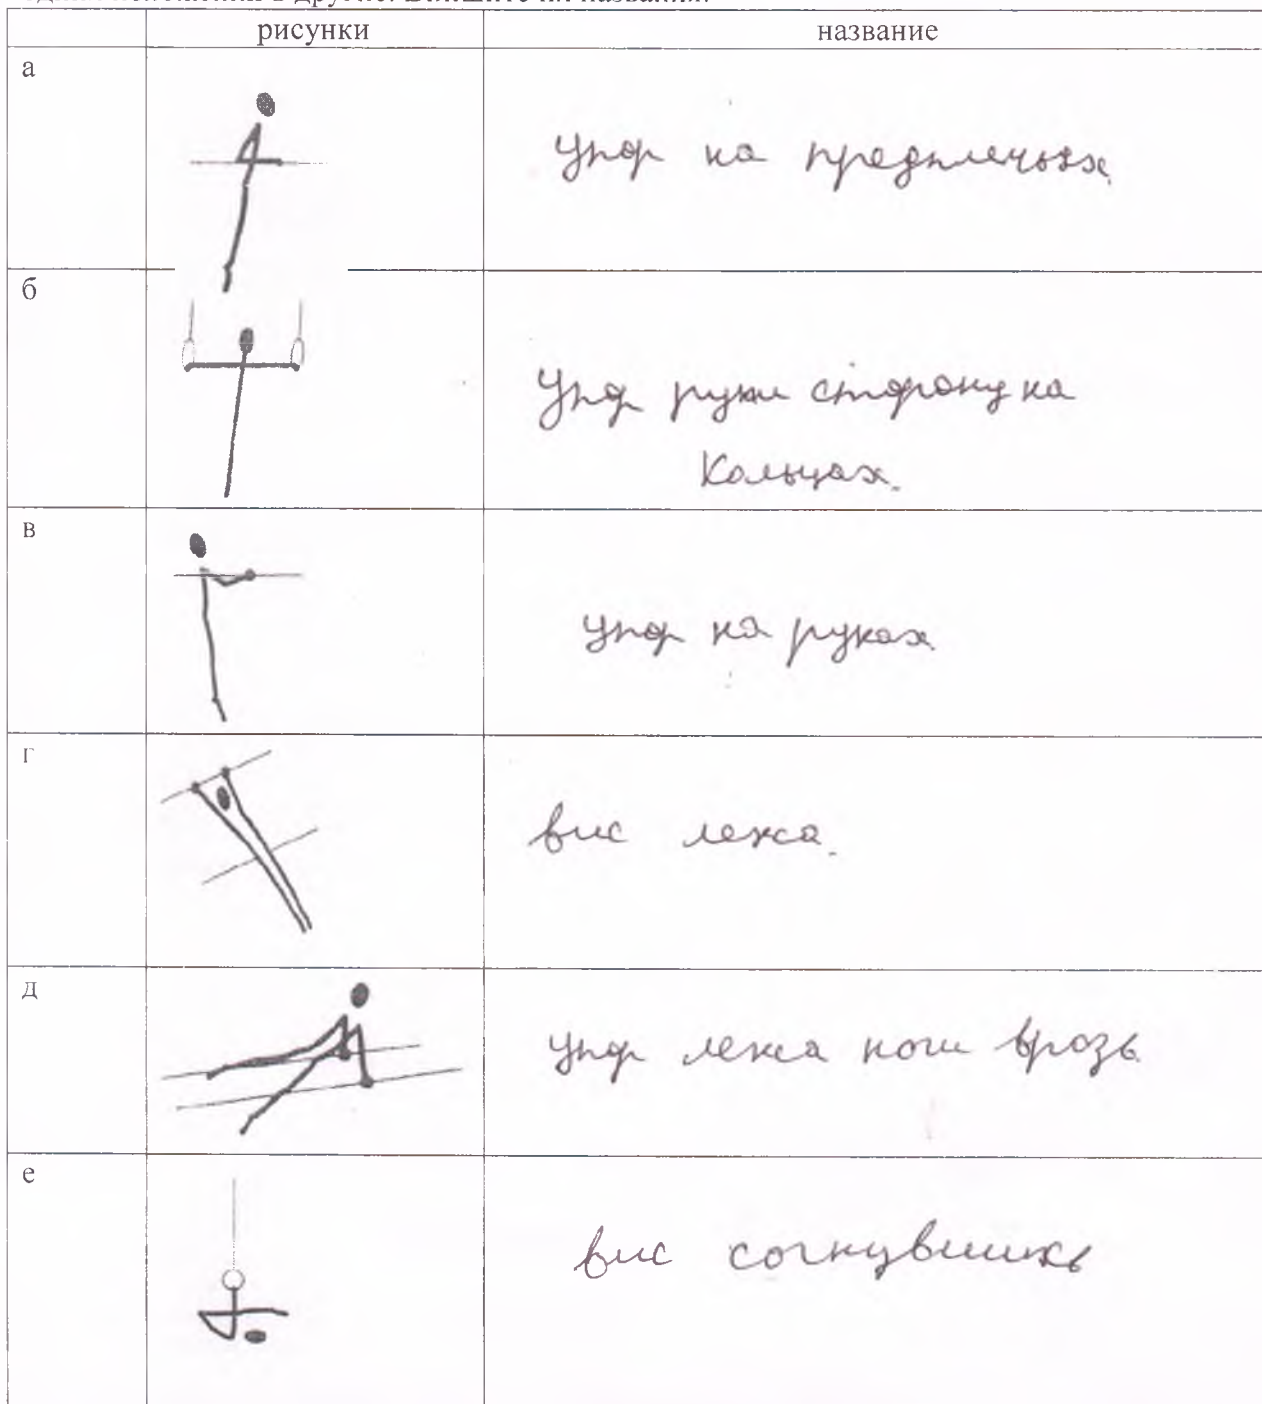 рисунки
название
а
упор на предплечьях.
б
Упор руки сторону на
Кольцах.
в
упор на руках
г
вис лежа.
д
упор лежа ноги врозь
е
вис согнувшись